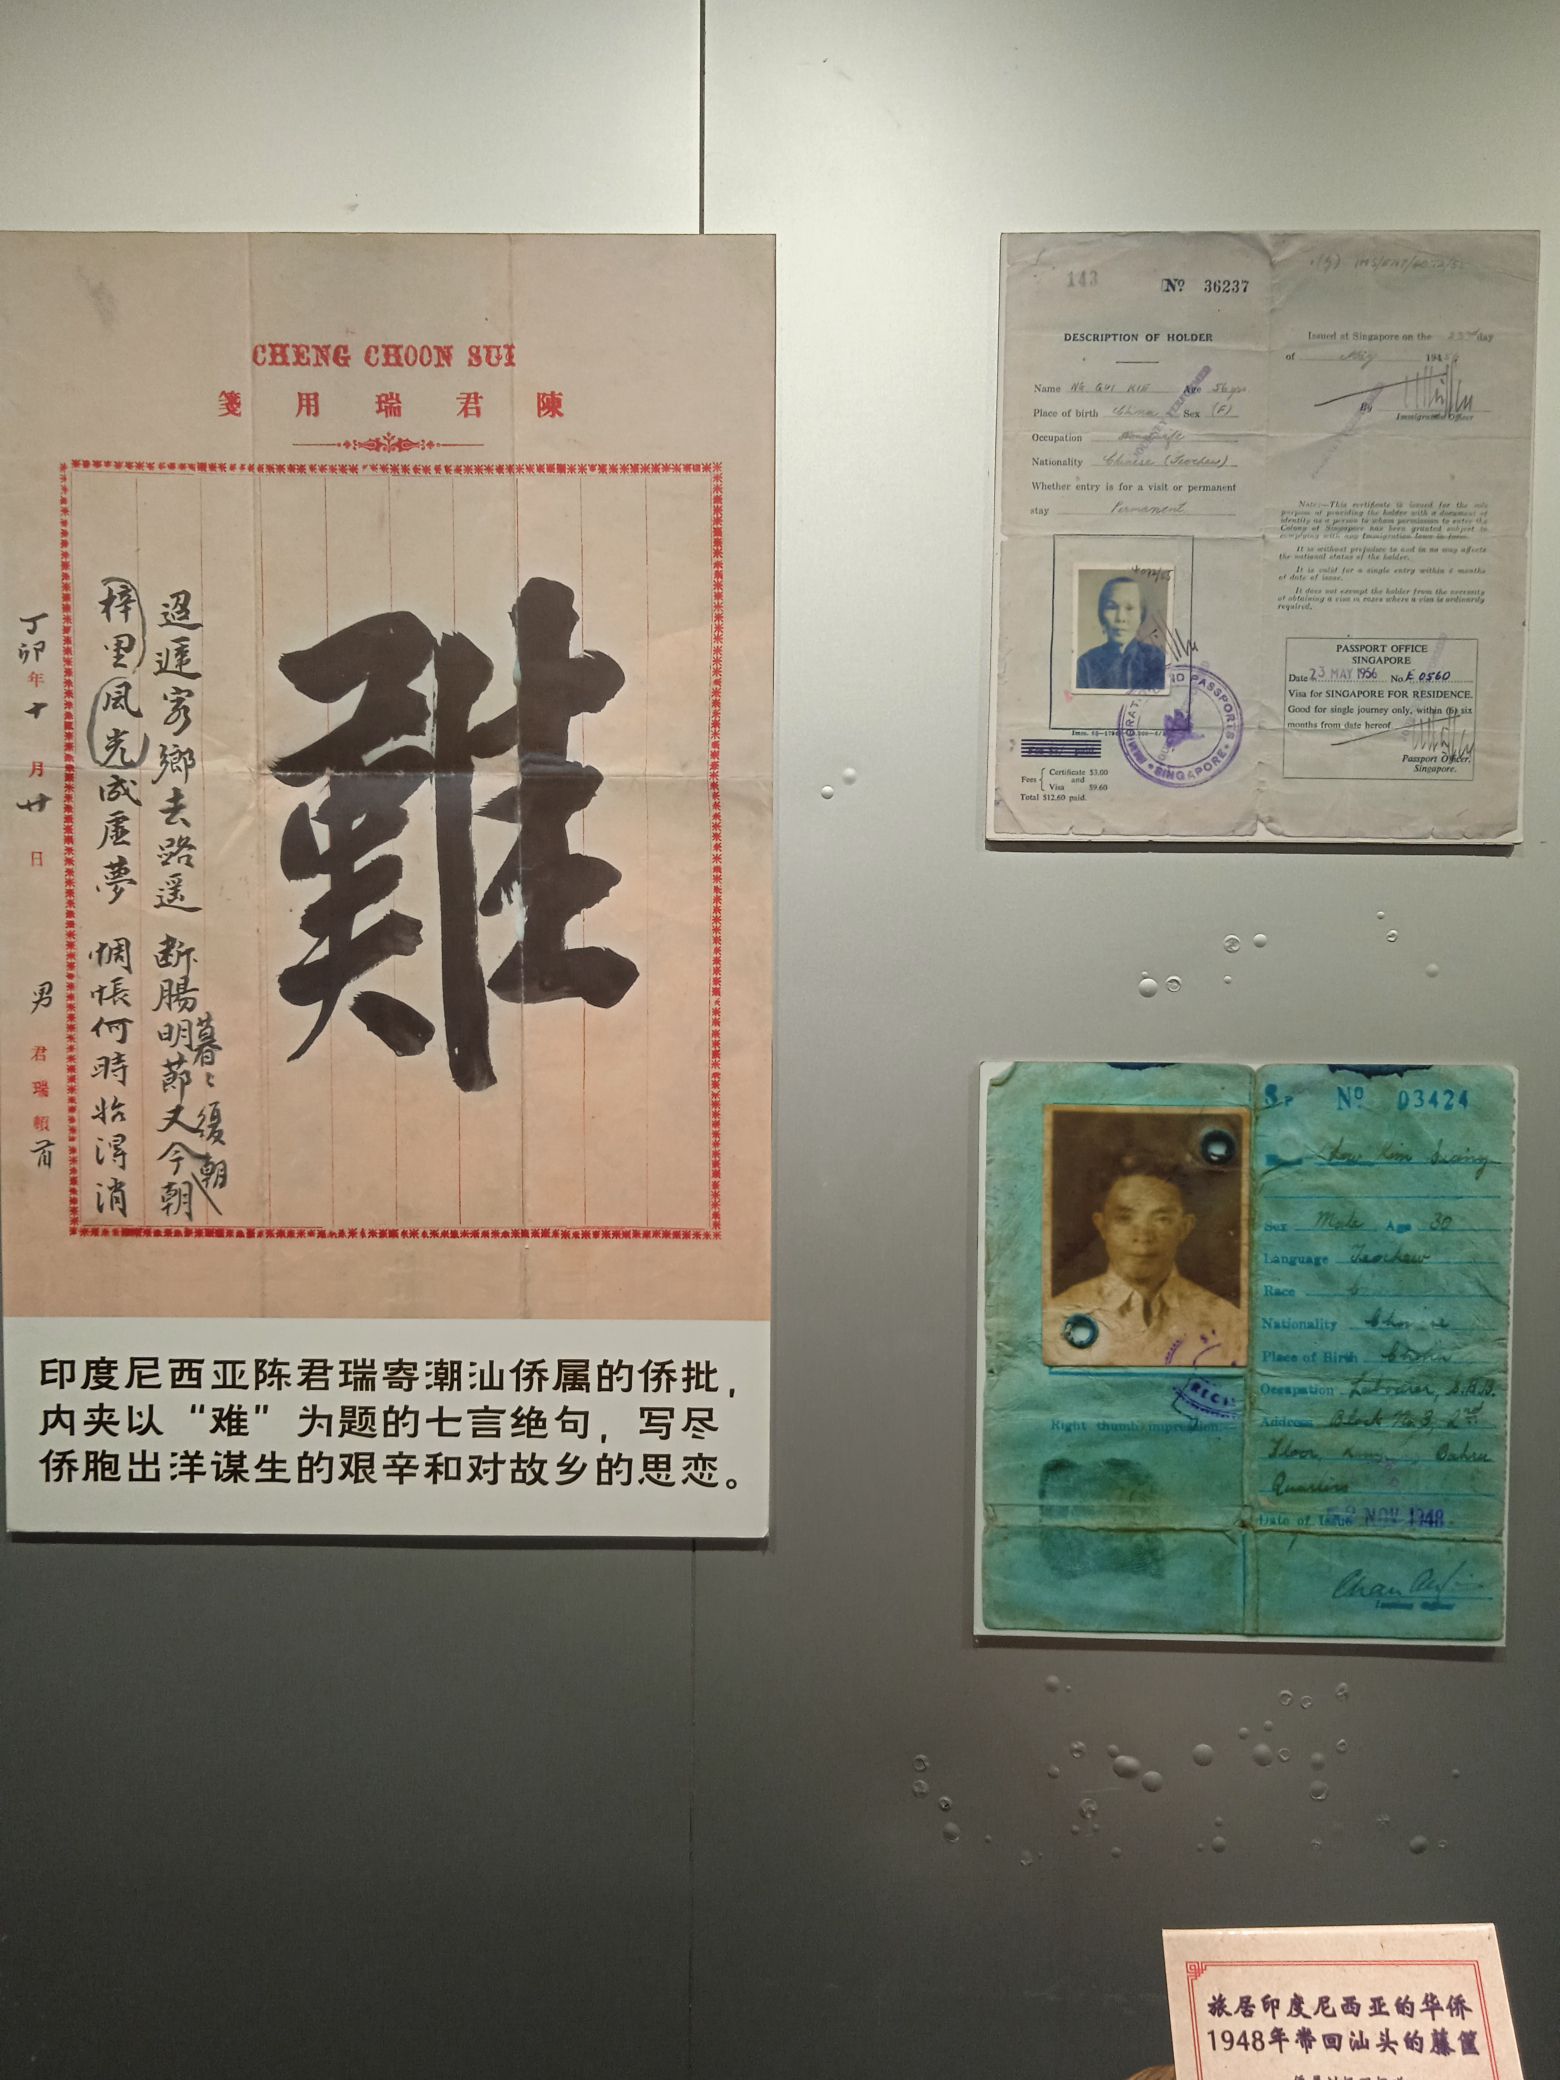 CHENG CHOON SUI
箋用瑞君陳
難
迢遞客鄉去路遥
断腸明莭又今朝
暮〻復朝
梓里風光成虛夢
惆悵何時始得消
丁卯年十月廿日
男君瑞頓
印度尼西亚陈君瑞寄潮汕侨属的侨批，
内夹以“难”为题的七言绝句，写尽
侨胞出洋谋生的艰辛和对故乡的思恋。
143
Nº 36237
DESCRIPTION OF HOLDER
Name NG GUI KIE Age 56 yrs
Place of birth China Sex (F)
Occupation Housewife
Nationality Chinese (Teochew)
Whether entry is for a visit or permanent
stay Permanent
4072/55
IMMIGRATION AND PASSPORTS
SINGAPORE
Fees Certificate $3.00
and
Visa $9.60
Total $12.60 paid.
Issued at Singapore on the 23rd day
of May 1956
By
Immigration Officer
Note:—This certificate is issued for the sole
purpose of providing the holder with a document of
identity as a person to whom permission to enter the
Colony of Singapore has been granted subject to
complying with any Immigration laws in force.
It is without prejudice to and in no way affects
the national status of the holder.
It is valid for a single entry within 6 months
of date of issue.
It does not exempt the holder from the necessity
of obtaining a visa in cases where a visa is ordinarily
required.
PASSPORT OFFICE
SINGAPORE
Date 23 MAY 1956 No. E 0560
Visa for SINGAPORE FOR RESIDENCE.
Good for single journey only, within (6) six
months from date hereof
Passport Officer,
Singapore.
Right thumb impression
S P Nº 03424
Chew Kim Suang
Sex Male Age 30
Language Teochew
Race
Nationality Chinese
Place of Birth China
Occupation Labourer, S.H.B.
Address Block No. 3, 2nd
Floor, Bahru
Quarters
Date of Issue NOV 1948
旅居印度尼西亚的华侨
1948年带回汕头的藤筐